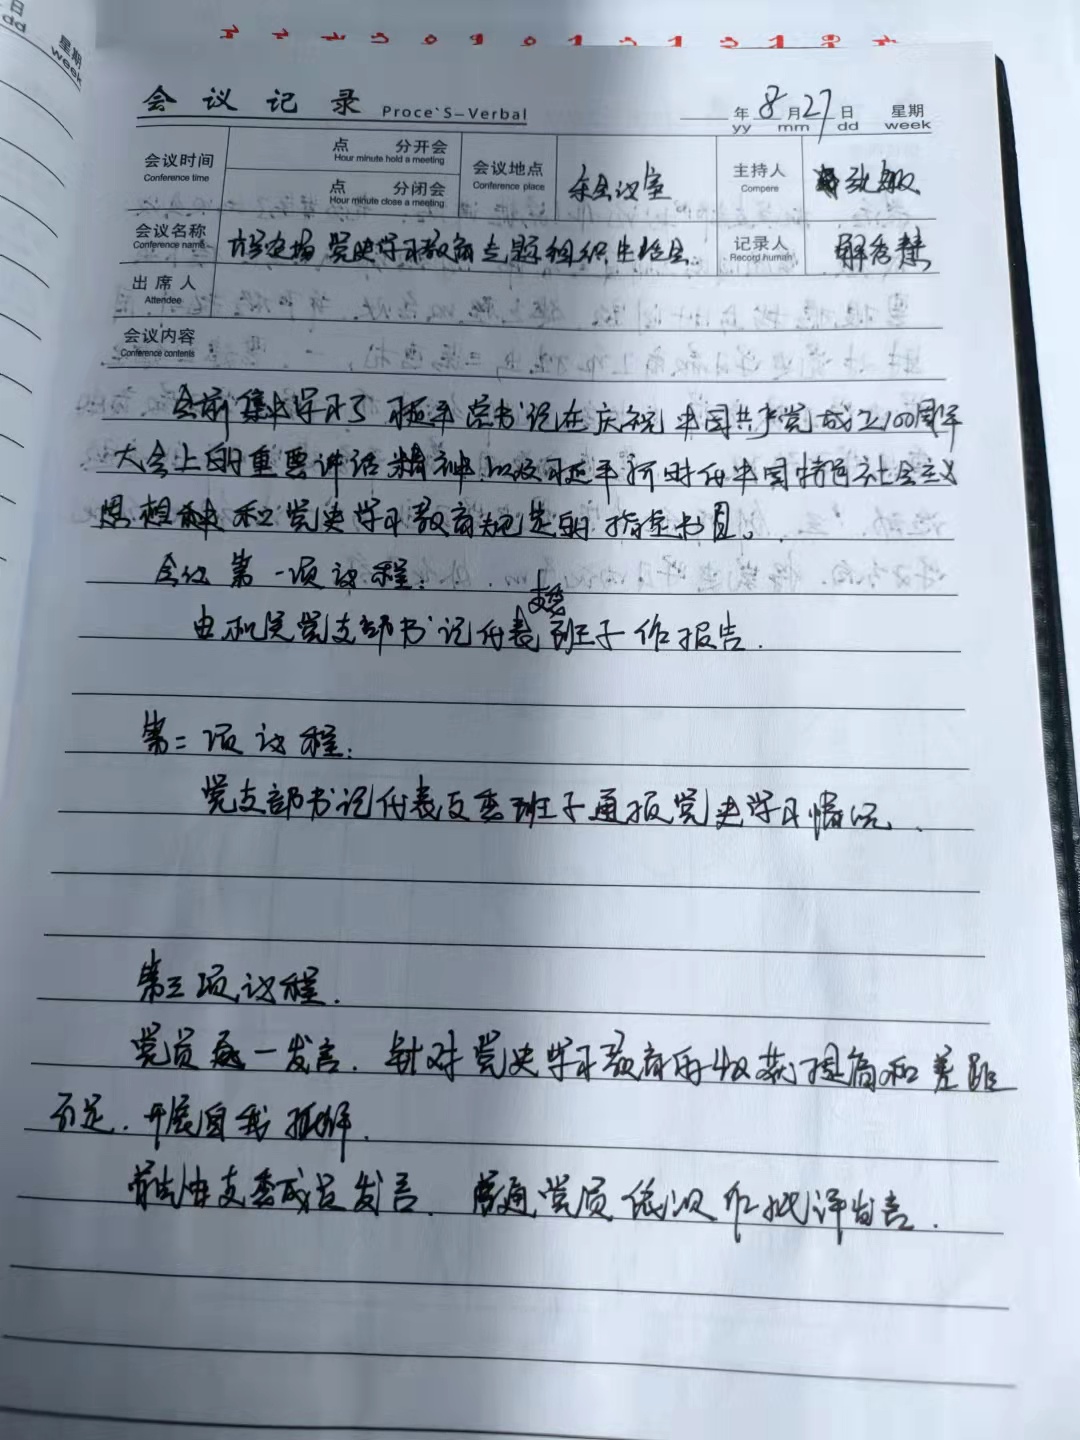 会议记录 Proce`S-Verbal
年 8 月 27 日 星期
yy mm dd week
会议时间 Conference time
点 分开会
Hour minute hold a meeting
点 分闭会
Hour minute close a meeting
会议地点 Conference place
会议室
主持人 Compere
敏
会议名称 Conference name
党史学习教育专题组织生活会
记录人 Record human
解秀慧
出席人 Attendee
会议内容 Conference contents
会前集中学习了习近平总书记在庆祝中国共产党成立100周年
大会上的重要讲话精神,以及习近平新时代中国特色社会主义
思想 和党史学习教育规定的指定书目。
会议第一项议程:
支委
由机关党支部书记代表班子作报告.
第二项议程:
党支部书记代表支委班子通报党史学习情况.
第三项议程.
党员逐一发言.针对党史学习教育的收获提高和差距
不足.开展自我批评.
首先由支委成员发言.普通党员依次作批评发言.
日
dd
星期
week